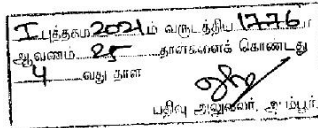 I புத்தகம் 2021ம் வருடத்திய 1776
ஆவணம் 25 தாள்களைக் கொண்டது
4 வது தாள்
பதிவு அலுவலர், ஆம்பூர்.